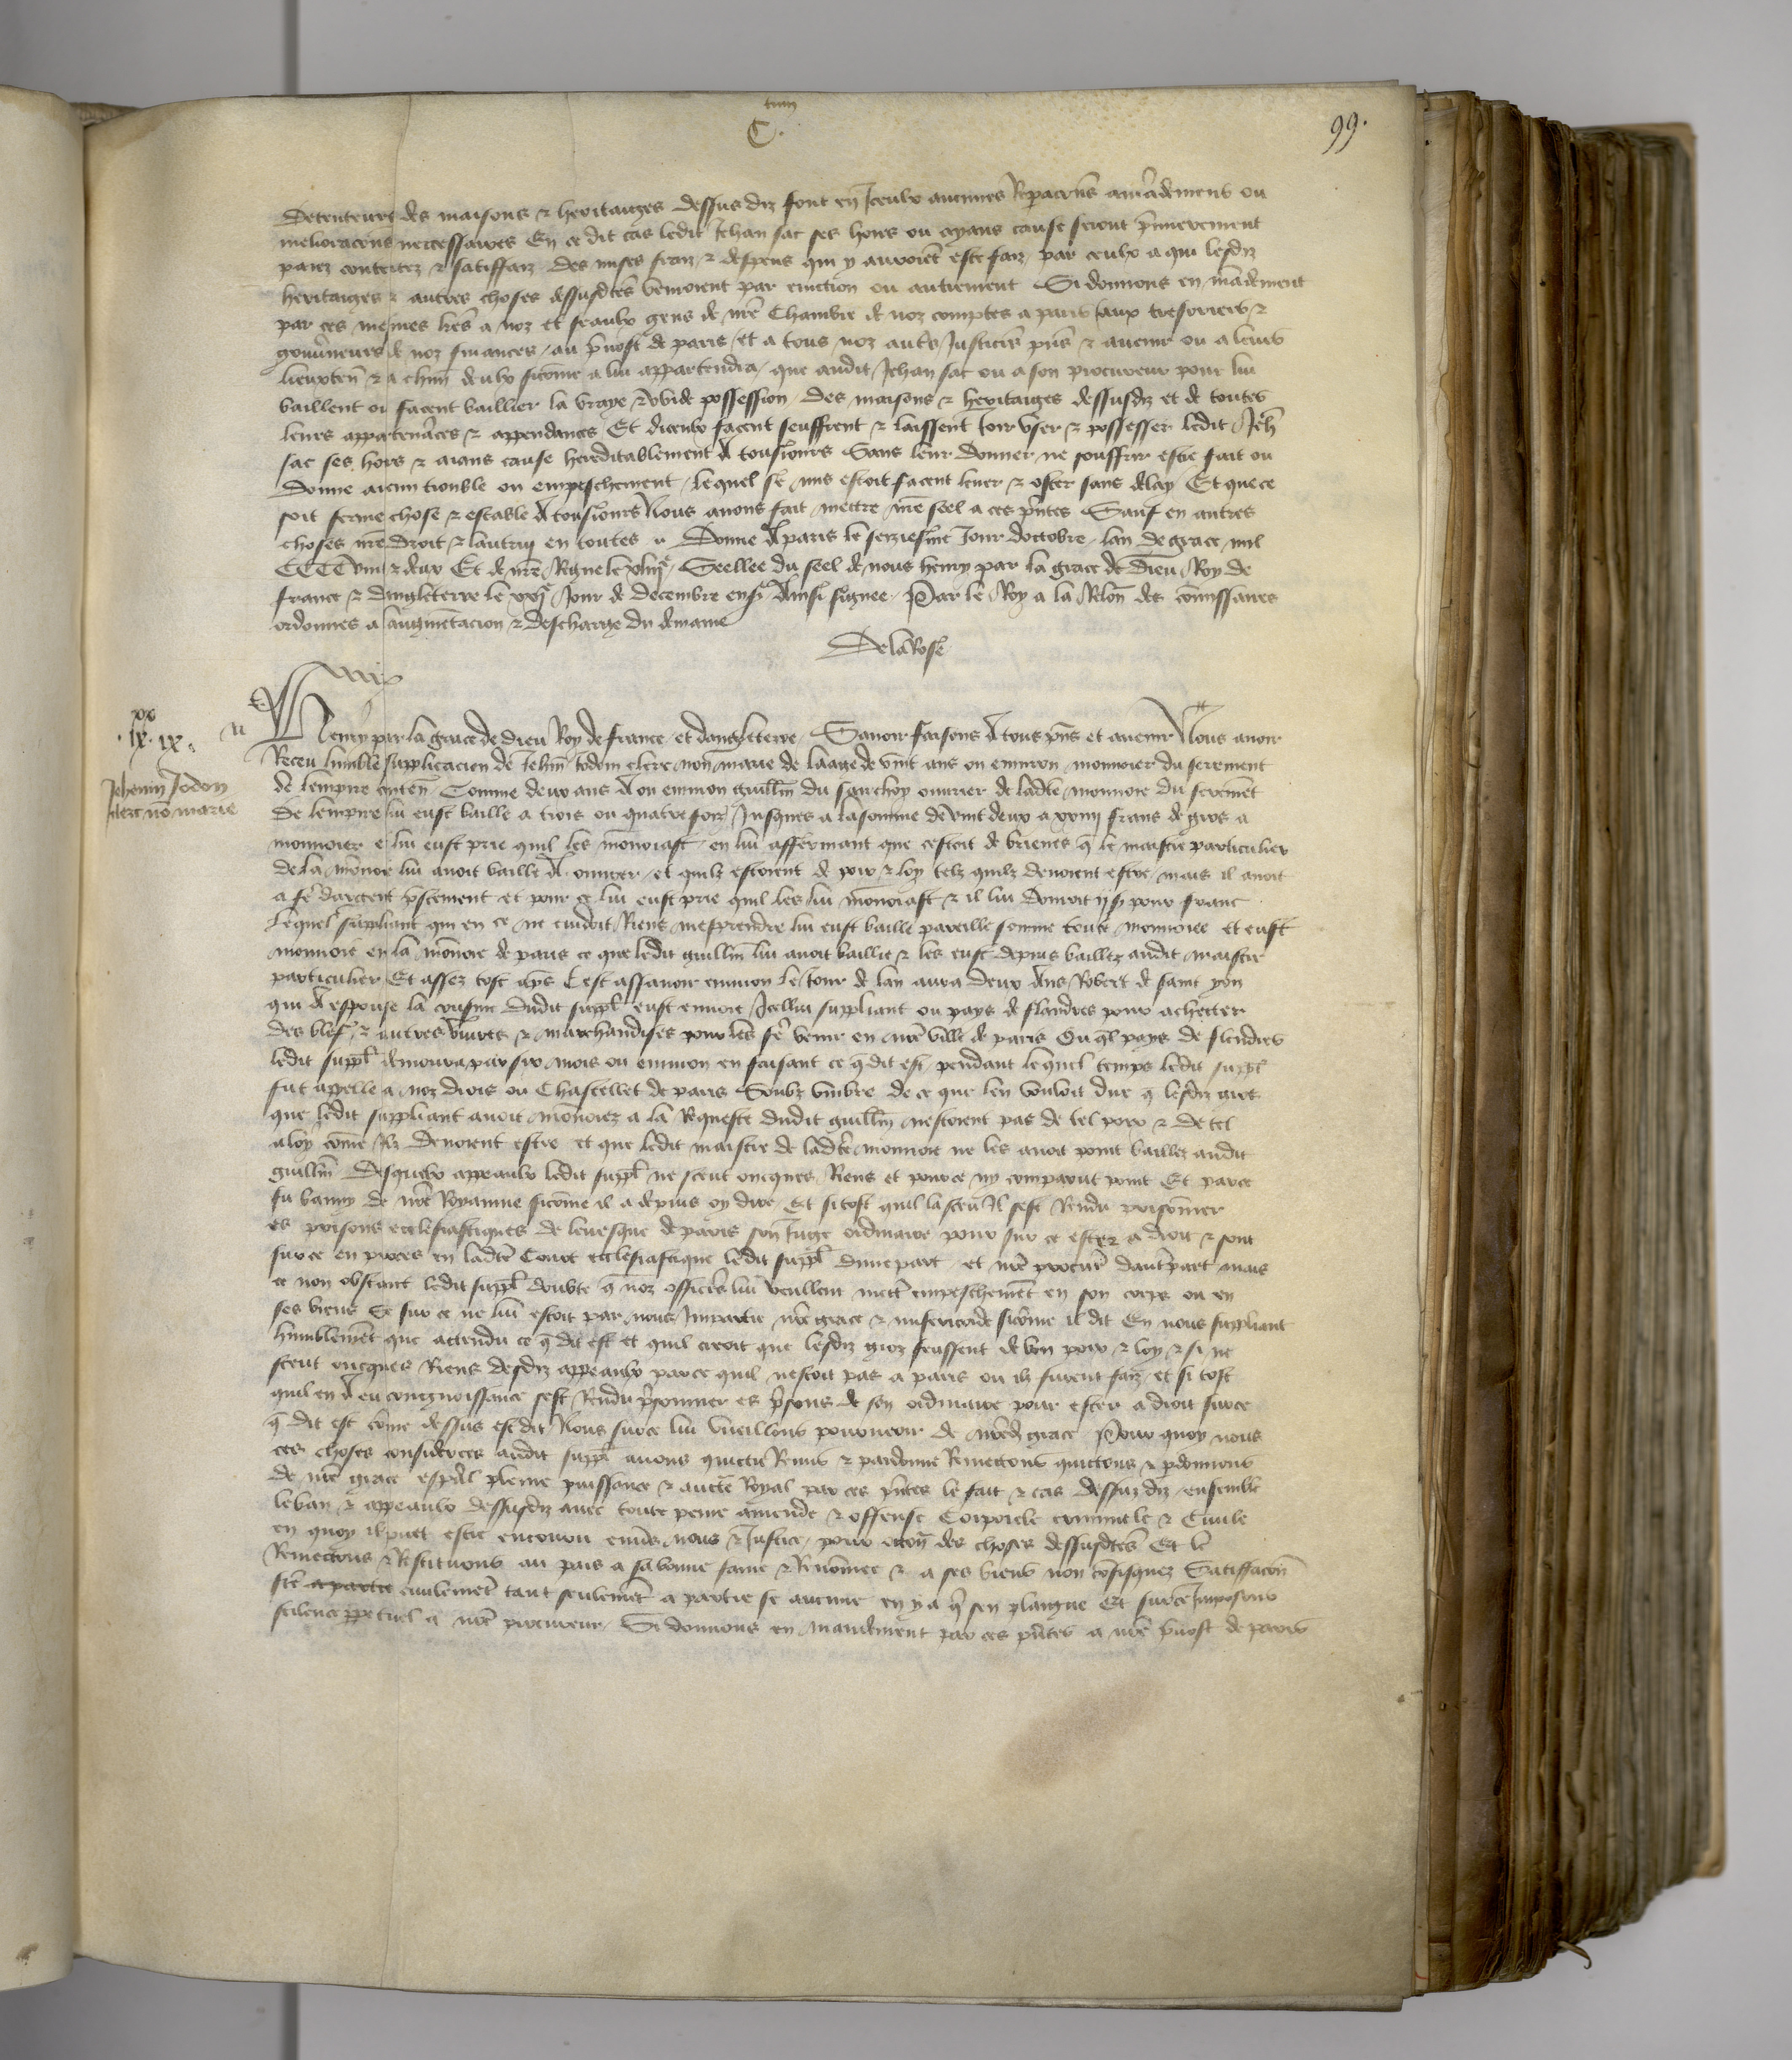 C.tum
99.
Detenteurs des maisons & heritaiges dessus diz font en Iceulx aucunes Repacions amēdemens ou
melioracions neccessaires En ce dit cas ledit Jehan sac ses hoirs ou ayans cause seront p̄mierement
paiez contentez & satiffaiz des mises fraiz & despens qui y auroiēt este faiz par ceulx a qui lesdiz
heritaiges & autres choses dessusdtes vēnroient par eviction ou autrement Si donnons en mādement
par ces mesmes lrēs a noz et feaulx gens de nrē Chambre de noz comptes a paris aux tresoriers &
gouv̄neurs de noz finances au p̄vost de paris et a tous noz aut̄s Justiciēs pn̄s & avenir ou a leurs
lieuxten̄ & a chūn deulx sicōme a lui appartendra que audit Jehan sac ou a son procureur pour lui
baillent ou facent baillier la vraye & vuide possession des maisons & heritaiges dessusdiz et de toutes
leurs apparten̄ces & appendances Et diceulx facent seuffrent & laissent Joir vser & possesser ledit Jeh̄
sac ses hoirs & aians cause hereditablement A tousiours Sans leur donner ne souffrir estre fait ou
donne aucun trouble ou empeschement lequel se mis estoit facent lever & oster sans delay Et que ce
soit ferme chose & estable A tousiours Nous avons fait mettre nrē seel a ces pn̄tes Sauf en autres
choses nrē droit & lautruy en toutes Donne A paris le seiziesme Jour doctobre lan de grace mil
CCCC vint & deux Et de nrē Regne le xliije Seellee du seel de nous henry par la grace de Dieu Roy de
france & dangleterre le xxije Jour de decembre ens̄ Ainsi signee Par le Roy a la Relon̄ des cōmissaires
ordonnes a laugmētacion & descharge du demaine
De la Rose
Henry par la grace de dieu Roy de france et dangleterre Savoir faisons A tous pn̄s et avenir Nous avoir
iiiixx ix.
Jehanin Jodoin
clerc nō marie
Receu lumble supplicacion de Jehān Jodoin clerc non marie de laage de vint ans ou environ monnoier du serement
de lempire conten̄ Comme deux ans A ou environ guillm̄ du ouvrier de ladte monnoie du seremēt
de lempire lui eust baille a trois ou quatre foiz Jusques a la somme de vint deux a xxiiij frans de gros a
monnoier & lui eust prie quil les mōnoiast en lui affermant que cestoit de brieves q̄ le maistre particulier
de la mōnoie lui avoit baille A ouvrer et quilz estoient de poix & loy telz quilz devoient estre mais il avoit
a fe dargent p̄stement et pour ce lui eust prie quil les lui mōnoiast & il lui donroit ij s pour franc
Lequel suppliant qui en ce ne cuidoit Riens mesprendre lui eust baille pareille somme toute monnoiee et eust
monnoie en la mōnoie de paris ce que ledit guillm̄ lui avoit baillie & les eust depuis baillez audit maistre
particulier Et assez tost ap̄s Cest assavoir environ le Jour de lan aura deux Ans Robert de saint yon
qui A espouse la cousine dudit supplt eust envoie Jcellui suppliant ou pays de flandres pour achecter
des blefz & autres vivres & marchandises pour les fe venir en nrē ville de paris Ou ql̄ pays de flandres
ledit supplt demoura par six mois ou environ en faisant ce q̄ dit est pendant lequel temps ledit supplt
fut appelle a noz drois ou Chastellet de paris Soubz vmbre de ce que len vouloit dire q̄ lesdiz gros
que ledit suppliant avoit mōnoiez a la Requeste dudit guillm̄ nestoient pas de tel poix & de tel
aloy cōme ilz devoient estre et que ledit maistre de ladte monnoie ne les avoit point baillez audit
guillm̄ Desquelx appeaulx ledit supplt ne sceut oncques Riens et pource ny comparut point Et parce
fu banny de nrē Royaume sicōme il a depuis oy dire Et sitost quil la sceu Il sest Rendu prisonnier
es prisons ecclesiastiques de levesque de paris son Juge ordinaire pour sur ce ester a droit & sont
sur ce en proces en ladte Court ecclesiastique ledit supplt dune part et nrē procur̄ dautrēpart mais
ce non obstant ledit supplt doubte q̄ noz officiēs lui veullent mett̄ empeschemēt en son corps ou en
ses biens Se sur ce ne lui estoit par nous Impartie nrē grace & misericorde sicōme il dit En nous suppliant
humblemēt que actendu ce q̄ dit est et quil creoit que lesdiz gros feussent de bon poix & loy & si ne
sceut oncques Riens desdiz appeaulx parce quil nestoit pas a paris ou ilz furent faiz et si tost
quil en A eu congnoissance sest Rendu p̄sonnier es p̄sons de son ordinaire pour ester a droit sur ce
q̄ dit est cōme dessus est dit Nous sur ce lui vueillons pourveoir de nrēd grace Pour quoy nous
ces choses considerees audit supplt avons quictie Remis & pardonne Remectons quictons & pdonnons
de nrē grace esp̄al plaine puissance & aucte Royal par ces pn̄tes le fait & cas dessuz diz ensemble
le ban & appeaulx dessusdiz avec toute peine amende & offense Corporele criminele & Civile
en quoy il puet estre encouru env̄s nous & Justice pour occon̄ des choses dessusdtes Et le
Remectons & Restituons au pais a sa bonne fame & Renōmee & a ses biens non cōfisquez Satiffacon̄
fcē a partie civilemēt tant seulemēt a partie se aucune en y a q̄ sen plaigne Et sur ce Imposons
scilence ppetuel a nrē procureur Si donnons en mandement par ces pn̄tes a nrē p̄vost de paris